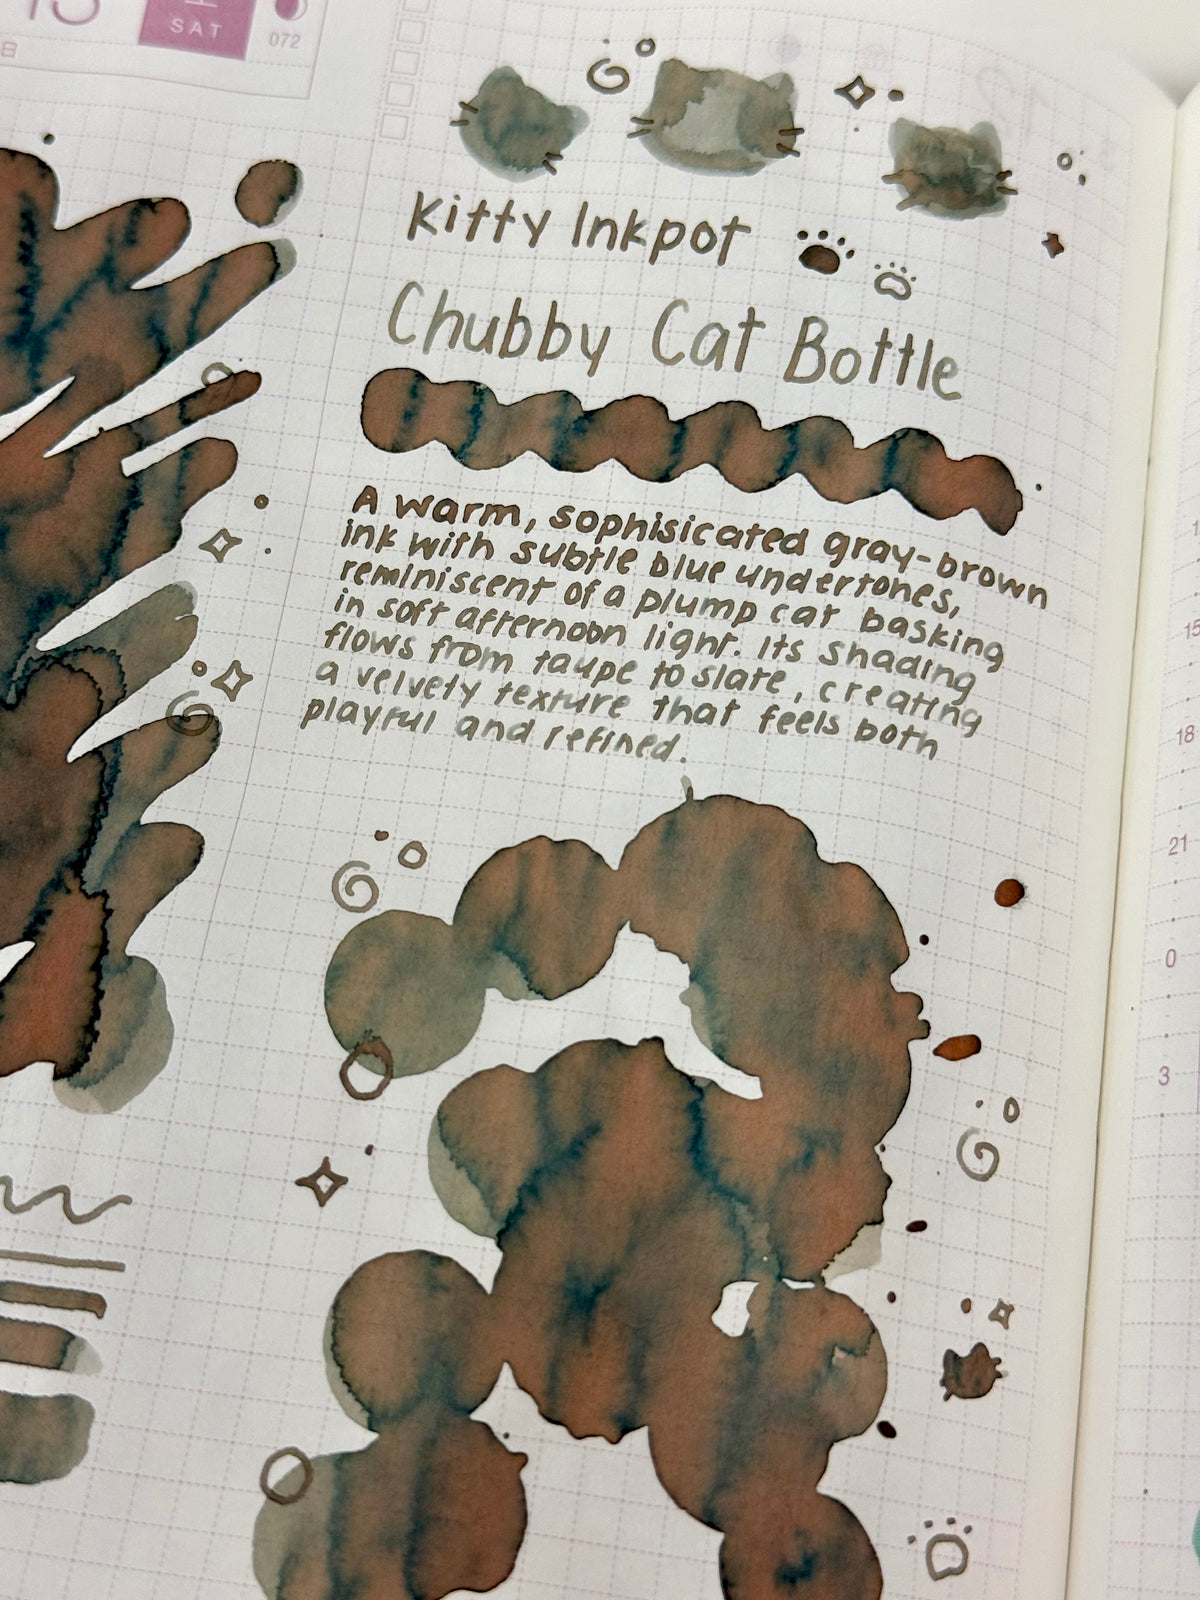 SAT
072
Kitty Inkpot
Chubby Cat Bottle
A warm, sophisicated gray-brown
ink with subtle blue undertones,
reminiscent of a plump cat basking
in soft afternoon light. Its shading
flows from taupe to slate, creating
a velvety texture that feels both
playful and refined.
15
18
21
0
3